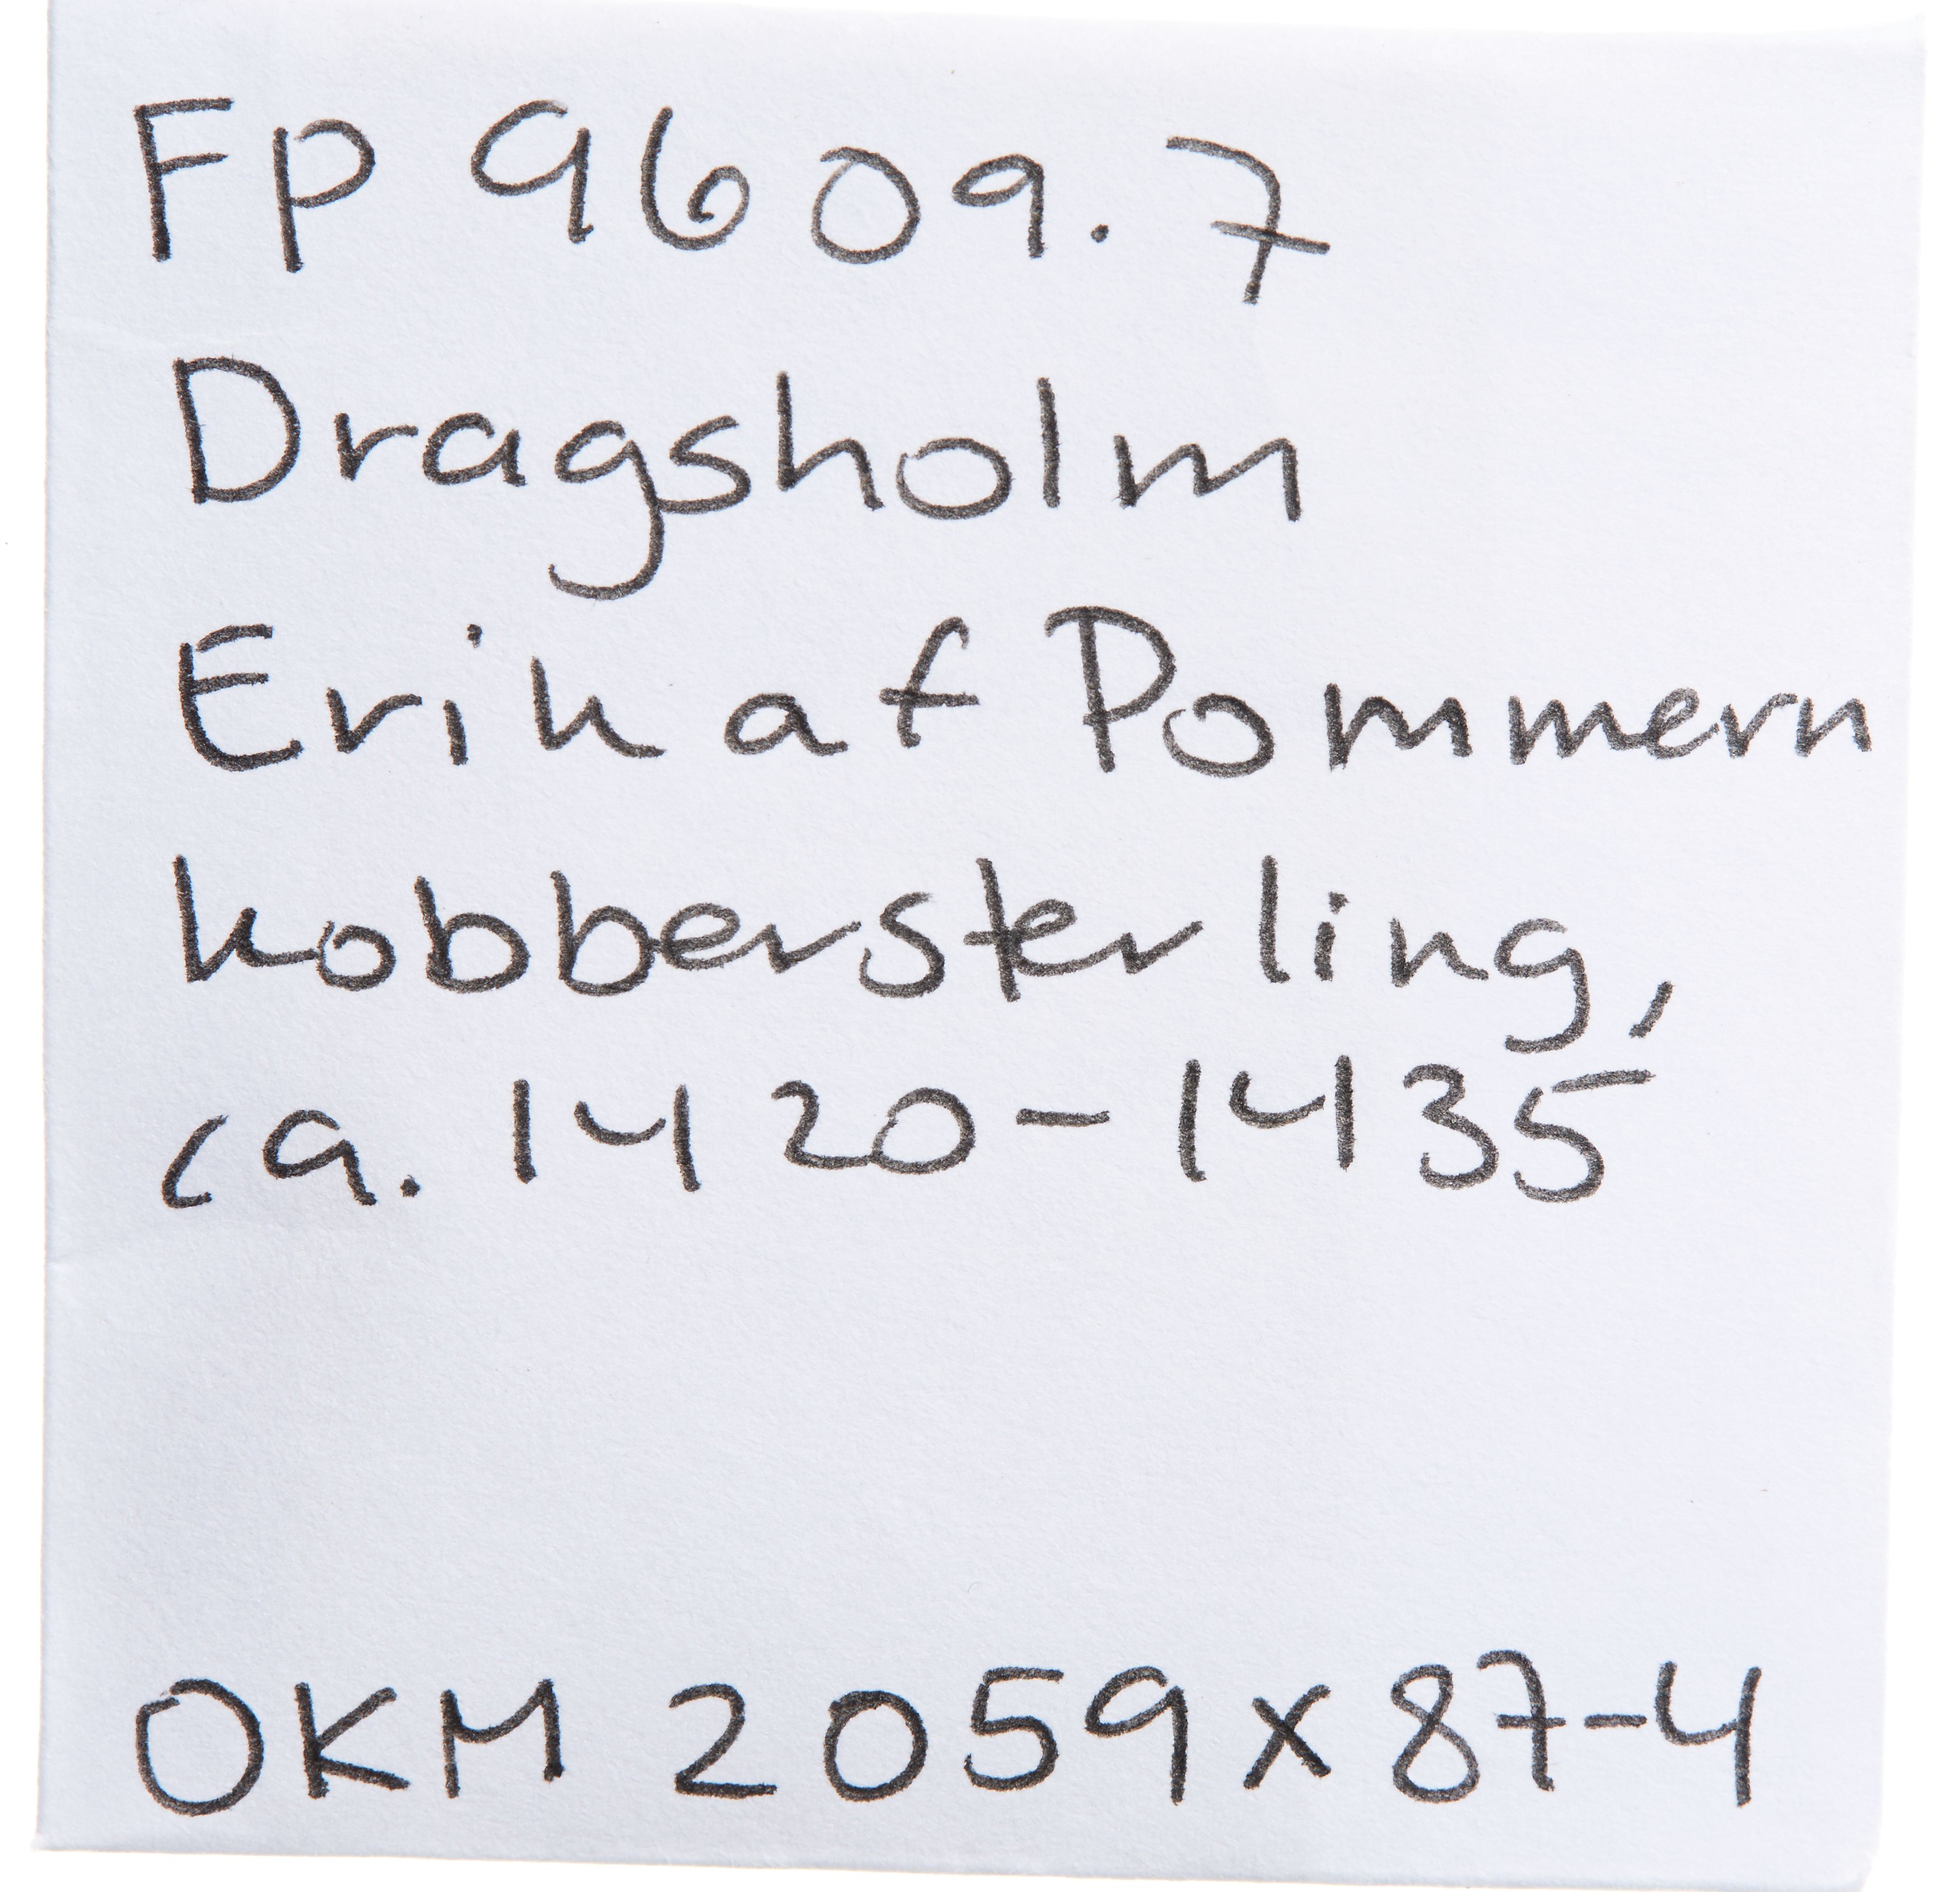 Fp 9609.7
Dragsholm
Erik af Pommern
kobbersterling,
ca. 1420-1435
OKM 2059x87-4